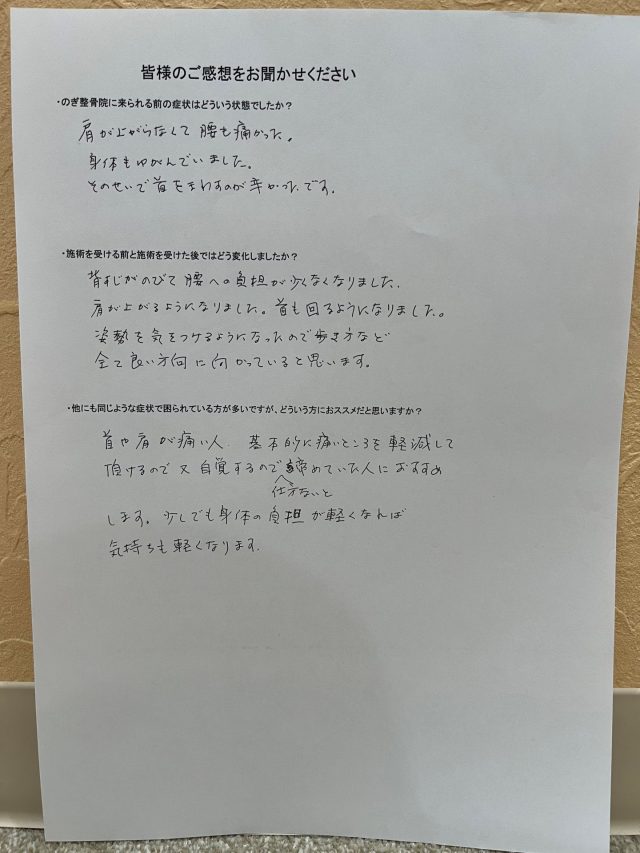 皆様のご感想をお聞かせください
・のぎ整骨院に来られる前の症状はどういう状態でしたか？
肩が上がらなくて腰も痛かった。
身体もゆがんでいました。
そのせいで首をまわすのが辛かったです。
・施術を受ける前と施術を受けた後ではどう変化しましたか？
背すじがのびて腰への負担が少なくなりました。
肩が上がるようになりました。首も回るようになりました。
姿勢を気をつけるようになったので歩き方など
全て良い方向に向かっていると思います。
・他にも同じような症状で困られている方が多いですが、どういう方におススメだと思いますか？
首や肩が痛い人 基本的に痛いところを軽減して
頂けるので又自覚するので諦めていた人におすすめ
仕方ないと
します。少しでも身体の負担が軽くなれば
気持ちも軽くなります。